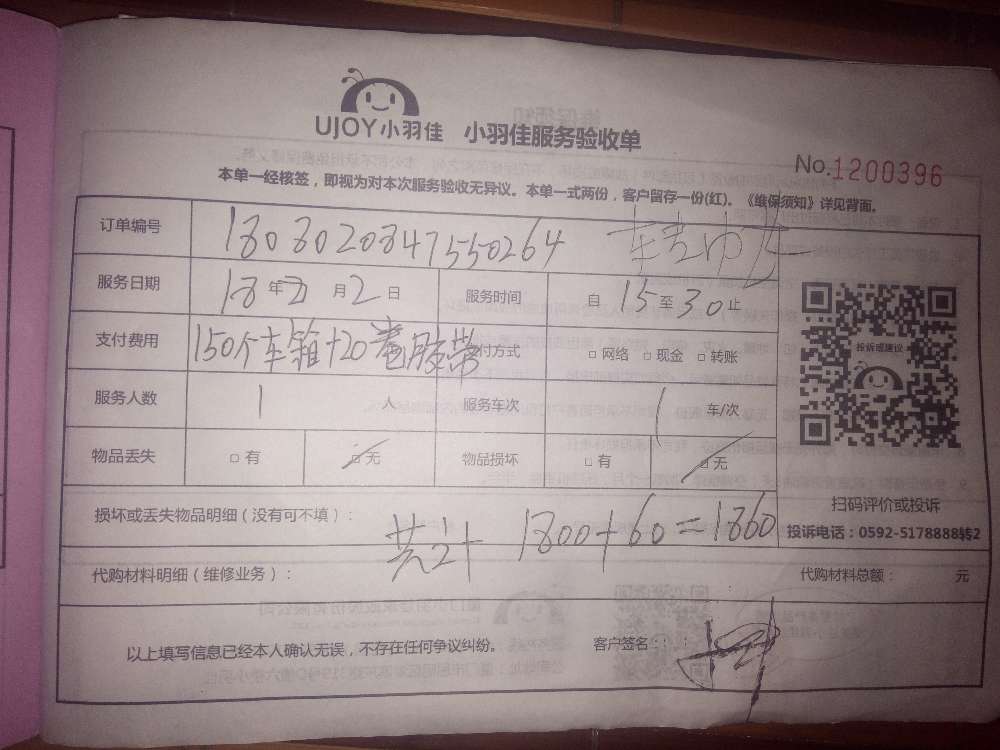 UJOY小羽佳 小羽佳服务验收单
No.1200396
本单一经核签，即视为对本次服务验收无异议。本单一式两份，客户留存一份(红)。《维保须知》详见背面。
订单编号 180302084755０264
服务日期 18年3月2日 服务时间 自15至30止
支付费用 150个车箱+20卷胶带 付方式 □网络 □现金 □转账
投诉或建议
服务人数 1人 服务车次 1车/次
物品丢失 □有 □无 物品损坏 □有 □无
扫码评价或投诉
损坏或丢失物品明细（没有可不填）： 共计 1800+60=1860
投诉电话：0592-5178888转2
代购材料明细（维修业务）： 代购材料总额： 元
以上填写信息已经本人确认无误，不存在任何争议纠纷。 客户签名：